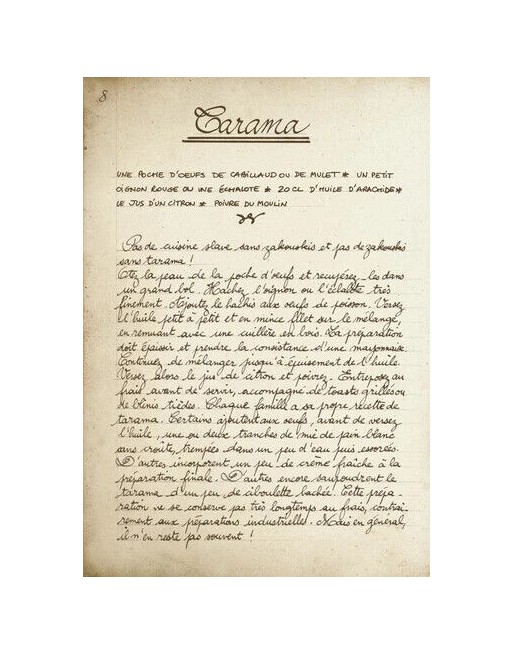 8
Tarama
UNE POCHE D'OEUFS DE CABILLAUD OU DE MULET * UN PETIT
OIGNON ROUGE OU UNE ÉCHALOTE * 20 CL D'HUILE D'ARACHIDE *
LE JUS D'UN CITRON * POIVRE DU MOULIN
Pas de cuisine slave sans zakouskis et pas de zakouskis
sans tarama !
Otez la peau de la poche d'oeufs et recupérez les dans
un grand bol. Hachez l'oignon ou l'échalote très
finement. Ajoutez le hachis aux oeufs de poisson. Versez
l'huile petit à petit et en mince filet sur le mélange,
en remuant avec une cuillère en bois. La préparation
doit épaissir et prendre la consistance d'une mayonnaise.
Continuez de mélanger jusqu'à épuisement de l'huile.
Versez alors le jus de citron et poivrez. Entreposez au
frais avant de servir, accompagné de toasts grillés ou
de blinis tièdes. Chaque famille a sa propre recette de
tarama. Certains ajoutent aux oeufs, avant de verser
l'huile, une ou deux tranches de mie de pain blanc
sans croûte, trempées dans un peu d'eau puis essorées.
D'autres incorporent un peu de crème fraîche à la
préparation finale. D'autres encore saupoudrent le
tarama d'un peu de ciboulette hachée. Cette prépa-
ration ne se conserve pas très longtemps au frais, contrai-
rement aux préparations industrielles. Mais en général,
il n'en reste pas souvent !